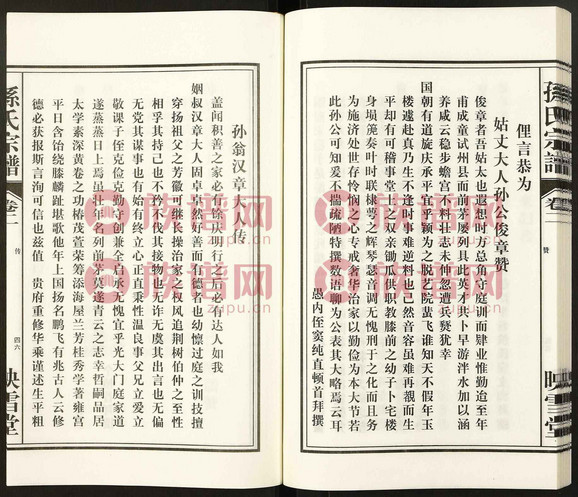 俚言恭为
姑丈大人孙公俊章赞
俊章者吾姑太也遐想时方总角守庭训而肄业惟勤迨至年
甫成童试州县而文茅屡列具此英才不卜早游泮水加以涵
养咸云稳步蟾宫不料壮志未伸忽遭兵燹犹幸
国朝有道旋庆承平宜乎颖为之脱艺院蜚飞谁知天不假年玉
楼遽赴真乃生不逢时事难逆料也然音容虽难再觏而生
平却有可稽事堂上之双亲锄瓜供职教膝前之幼子卜宅楼
身埙篪奏叶时联棣萼之辉琴瑟音调无愧刑于之化而且务
为施济处世存怜悯之心专戒奢华治家以勤俭为本大节若
此孙公可知爰不揣疏陋特撰数语聊为公表其大略焉云耳
愚内侄窦纯直顿首拜撰
孙氏宗谱
卷二
赞
映雪堂
孙翁汉章大人传
盖闻积善之家必有徐庆明行之后必有达人如我
姻叔汉章大人固卓卓然好善而明德者也幼懔过庭之训技擅
穿扬祖父之芳徽可继长操治家之权风追荆树伯仲之至性
相孚其持己也不矜不伐其接物也无诈无虞其出言也无偏
无党其谋事也有始有终立心正直秉性温良事父兄立爱立
敬课子侄克俭克勤守创兼全启承无愧宜乎光大门庭家道
遂蒸蒸日上焉虽壮志之列前茅莫遂青云之志幸哲嗣品居
太学素深黄卷之功椿茂萱荣筹添海屋兰芳桂秀学著雍宫
平日含饴绕膝麟趾堪歌他年上国扬名鹏飞有兆古人云修
德必获报斯言洵可信也兹值　贵府重修华乘谨述生平粗
孙氏宗谱
卷二
传
四六
映雪堂
族谱网
zupu.cn